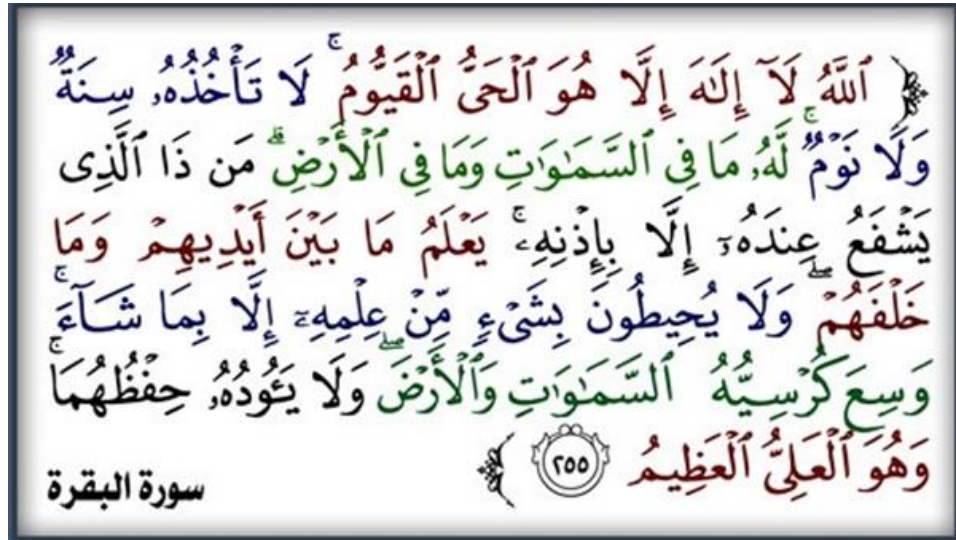 ﴿ ٱللَّهُ لَآ إِلَٰهَ إِلَّا هُوَ ٱلْحَىُّ ٱلْقَيُّومُ ۚ لَا تَأْخُذُهُۥ سِنَةٌ
وَلَا نَوْمٌ ۚ لَّهُۥ مَا فِى ٱلسَّمَٰوَٰتِ وَمَا فِى ٱلْأَرْضِ ۗ مَن ذَا ٱلَّذِى
يَشْفَعُ عِندَهُۥٓ إِلَّا بِإِذْنِهِۦ ۚ يَعْلَمُ مَا بَيْنَ أَيْدِيهِمْ وَمَا
خَلْفَهُمْ ۖ وَلَا يُحِيطُونَ بِشَىْءٍ مِّنْ عِلْمِهِۦٓ إِلَّا بِمَا شَآءَ ۚ
وَسِعَ كُرْسِيُّهُ ٱلسَّمَٰوَٰتِ وَٱلْأَرْضَ ۖ وَلَا يَـُٔودُهُۥ حِفْظُهُمَا ۚ
وَهُوَ ٱلْعَلِىُّ ٱلْعَظِيمُ ٢٥٥ ﴾
سورة البقرة